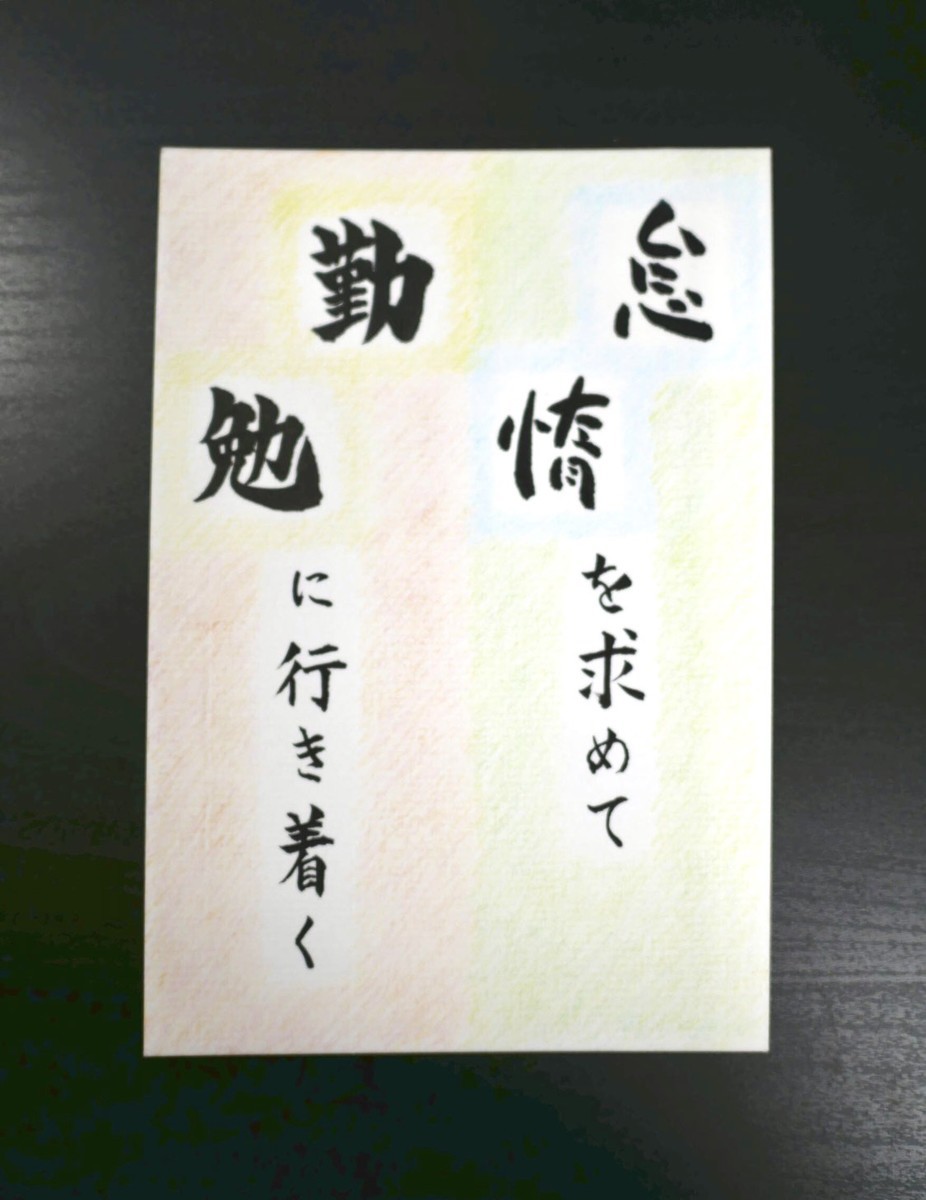 怠惰を求めて
勤勉に行き着く